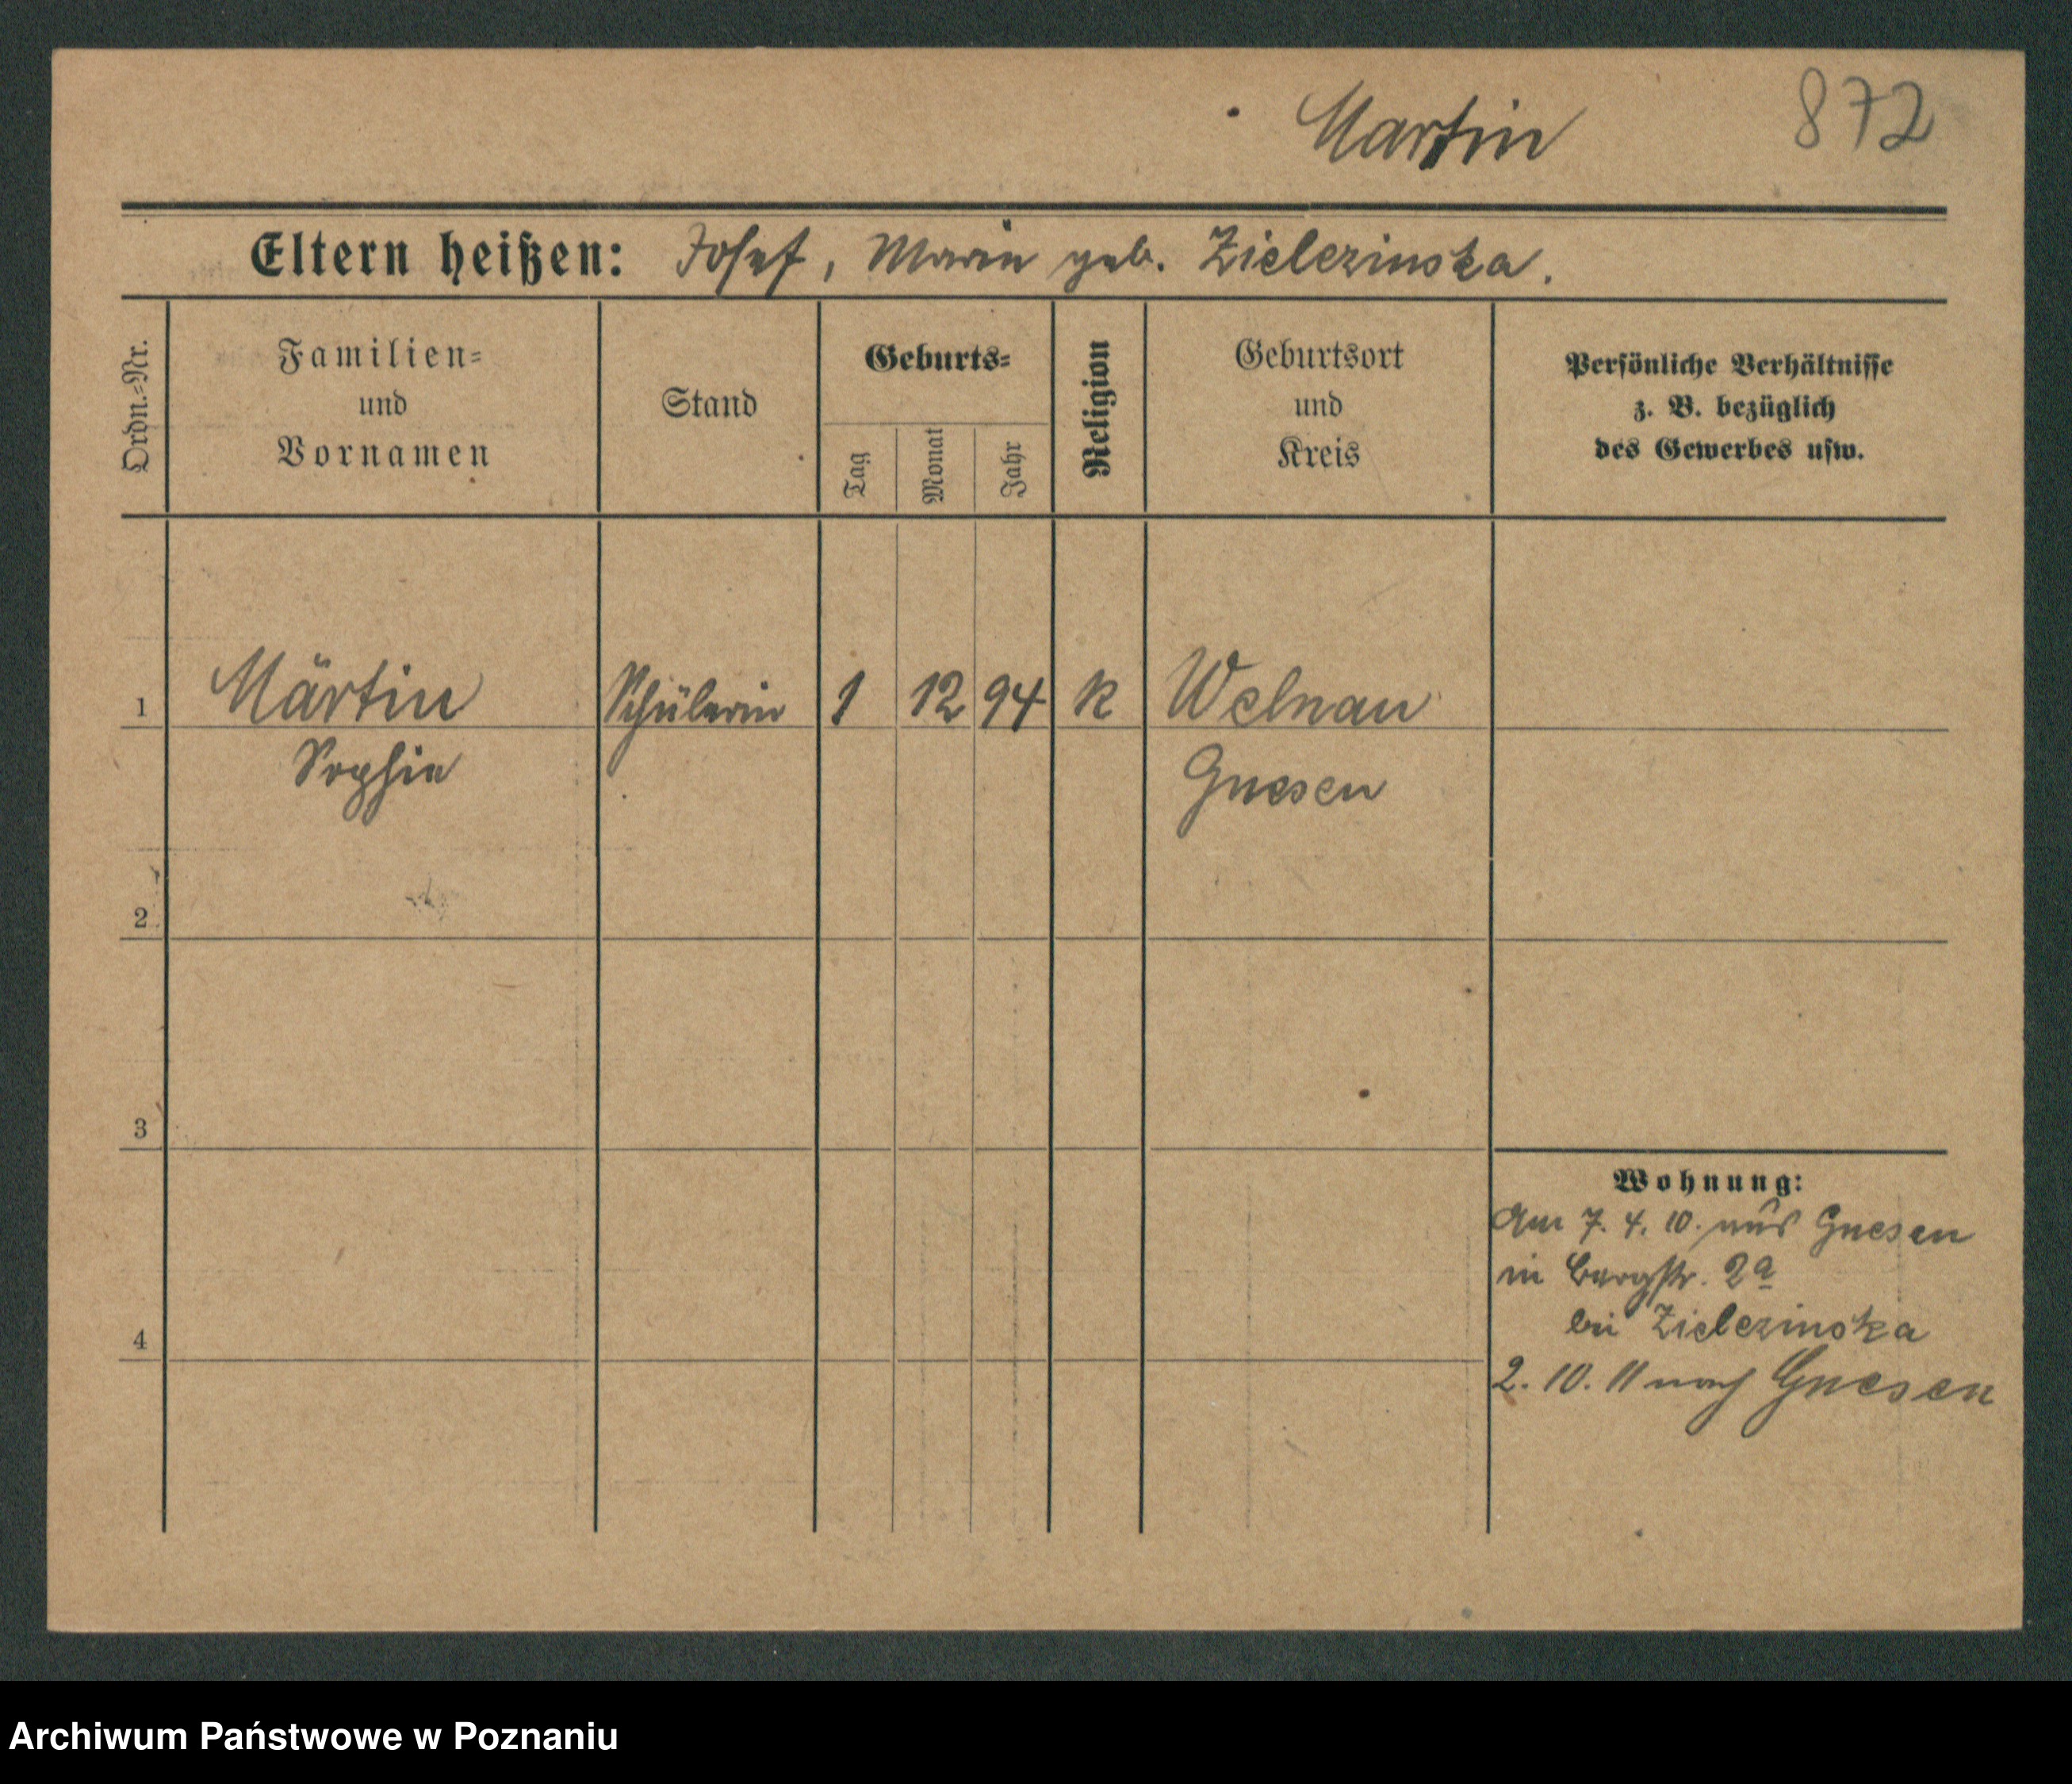 Martin 872
Eltern heißen: Josef, Marie geb. Zielezinska.
Ordn.-Nr.
Familien-
und
Vornamen
Stand
Geburts-
Tag
Monat
Jahr
Religion
Geburtsort
und
Kreis
Persönliche Verhältnisse
z. B. bezüglich
des Gewerbes usw.
1 Märtin Schülerin 1 12 94 k Welnau
Sophie Gnesen
2
3
Wohnung:
Am 7. 4. 10. aus Gnesen
in Bergstr. 2a
bei Zielezinska
4
2. 10. 11 nach Gnesen
Archiwum Państwowe w Poznaniu